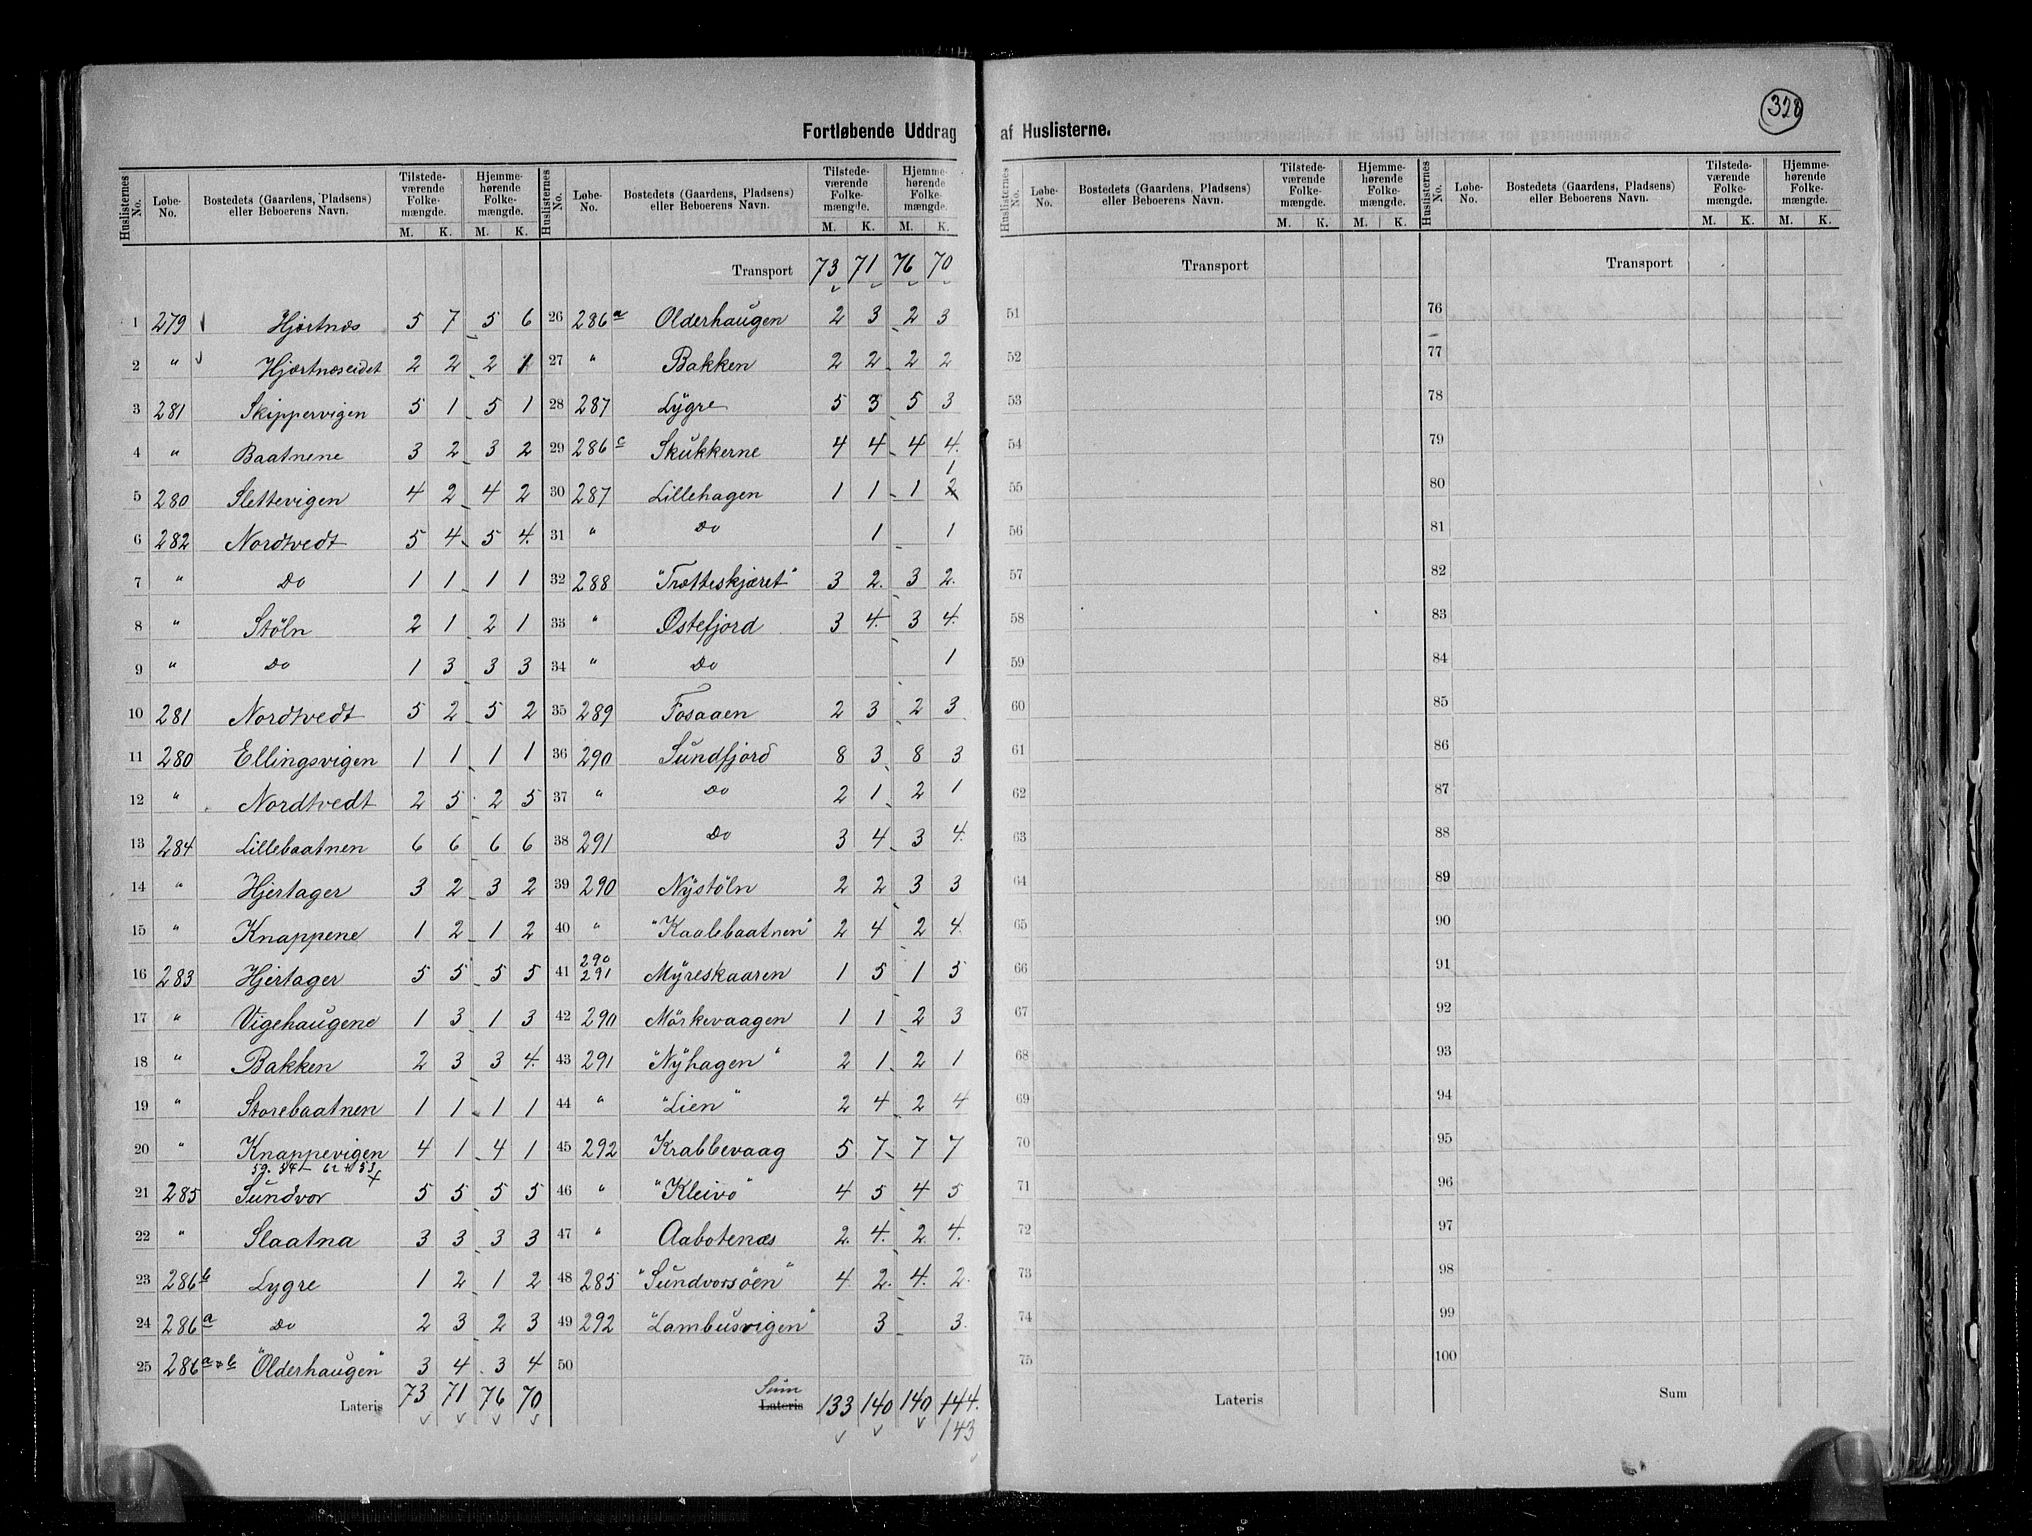 328
Fortløbende Uddrag af Huslisterne.
Huslisternes No. | Løbe-No. | Bostedets (Gaardens, Pladsens) eller Beboerens Navn. | Tilstedeværende Folkemængde. M. K. | Hjemmehørende Folkemængde. M. K.
1 279 Hjærtnæs 5 7 5 6
2 " Hjærtnæseidet 2 2 2 1
3 281 Skippervigen 5 1 5 1
4 " Baatnene 3 2 3 2
5 280 Slettevigen 4 2 4 2
6 282 Nordtvedt 5 4 5 4
7 " Do 1 1 1 1
8 " Støln 2 1 2 1
9 " Do 1 3 3 3
10 281 Nordtvedt 5 2 5 2
11 280 Ellingsvigen 1 1 1 1
12 " Nordtvedt 2 5 2 5
13 284 Lillebaatnen 6 6 6 6
14 " Hjertager 3 2 3 2
15 " Knappene 1 2 1 2
16 283 Hjertager 5 5 5 5
17 " Vigehaugene 1 3 1 3
18 " Bakken 2 3 3 4
19 " Storebaatnen 1 1 1 1
20 " Knappevigen 4 1 4 1
21 285 Sundvor 5 5 5 5
22 " Slaatna 3 3 3 3
23 286b Lygre 1 2 1 2
24 286a Do 2 3 2 3
25 286a+b "Olderhaugen" 3 4 3 4
Lateris 73 71 76 70
Huslisternes No. | Løbe-No. | Bostedets (Gaardens, Pladsens) eller Beboerens Navn. | Tilstedeværende Folkemængde. M. K. | Hjemmehørende Folkemængde. M. K.
Transport 73 71 76 70
26 286a Olderhaugen 2 3 2 3
27 " Bakken 2 2 2 2
28 287 Lygre 5 3 5 3
29 286c Skukkerne 4 4 4 4
30 287 Lillehagen 1 1 1 2 1
31 " Do 1 1
32 288 "Trætteskjæret" 3 2 3 2
33 " Østefjord 3 4 3 4
34 " Do 1
35 289 Fosaaen 2 3 2 3
36 290 Sundfjord 8 3 8 3
37 " Do 2 1 2 1
38 291 Do 3 4 3 4
39 290 Nystøln 2 2 3 3
40 " "Kaalebaatnen" 2 4 2 4
41 290 291 Myreskaaren 1 5 1 5
42 290 Mörkevaagen 1 1 2 3
43 291 "Nyhagen" 2 1 2 1
44 " "Lien" 2 4 2 4
45 292 Krabbevaag 5 7 7 7
46 " "Kleivo" 4 5 4 5
47 " Aabotenæs 2 4 2 4
48 285 "Sundvorsöen" 4 2 4 2
49 292 "Lambusvigen" 3 3
50
Sum Lateris 133 140 140 144
143
Huslisternes No. | Løbe-No. | Bostedets (Gaardens, Pladsens) eller Beboerens Navn. | Tilstedeværende Folkemængde. M. K. | Hjemmehørende Folkemængde. M. K.
Transport
51
52
53
54
55
56
57
58
59
60
61
62
63
64
65
66
67
68
69
70
71
72
73
74
75
Lateris
Huslisternes No. | Løbe-No. | Bostedets (Gaardens, Pladsens) eller Beboerens Navn. | Tilstedeværende Folkemængde. M. K. | Hjemmehørende Folkemængde. M. K.
Transport
76
77
78
79
80
81
82
83
84
85
86
87
88
89
90
91
92
93
94
95
96
97
98
99
100
Sum